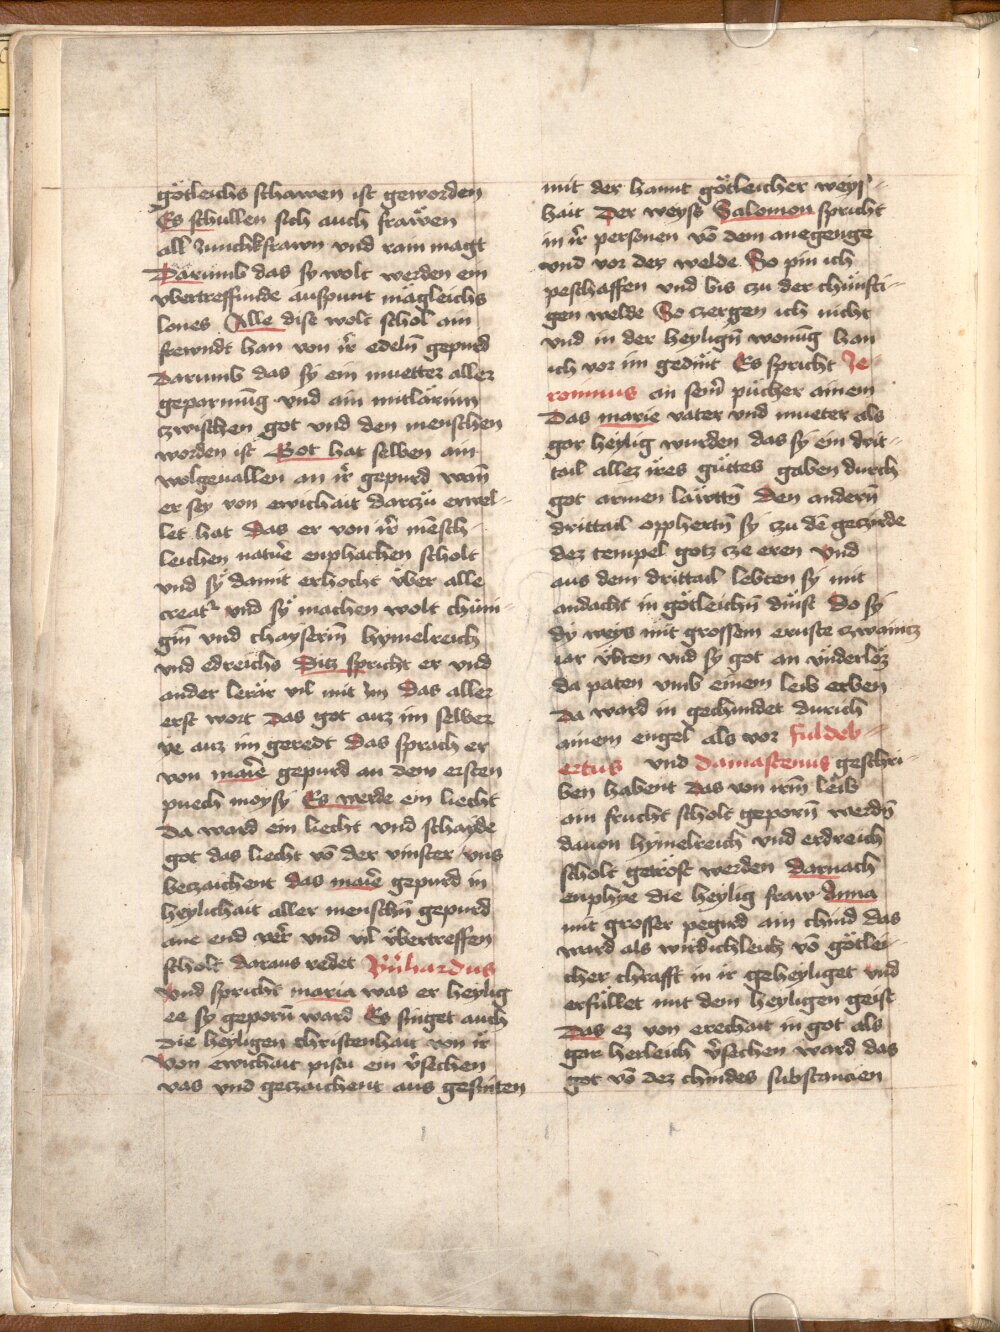 götleichs schawen ist geworden
Es schullen sich auch fräwen
all Junchkfrawn und rain magt
Darümb das sy wolt werden ein
vbertreffunde auspunt mägleichs
lones Alle dise wolt schol ain
frewndt han von ir̄ edeln̄ gepurd
Darumb das sy ein muetter aller
geparmūg vnd ain mitlärinn
zwischen got vnd den menschen
worden ist Got hat selben ain
wolgeuallen an ir̄ gepurd wan̄
er sey von ewichait darczü erwel-
let hat Das er von ir̄ mēsch
leichen natur̄e enphachen scholt
vnd sy damit erhocht über alle
creatᵉ vnd sy machen wolt chüni-
gin̄ vnd chayserin̄ hymelreich
vnd edreichs Ditz spricht er vnd
ander lerär vil mit im Das aller
erst wort Das got auz im selber
ye auz im geredt Das sprach er
von mar̄ie gepurd an dem ersten
puech moysy Es werde ein liecht
Da ward ein liecht vnd schayde
got das liecht vō der vinster vns
beczaichent das mar̄ie gepurd in
heylichait aller menschn̄ gepurd
ane end ver̄ vnd vil übertreffen
scholt daraus redet
vnd spricht maria was er heylig
ee sy geporn̄ ward Es singet auch
Die heyligen christenhait von ir
Von ewichait pistu ein v̄sechen
vas vnd geczaichent aus gesunten
mit der hannt götleicher weys-
hait Der weyss Salomon spricht
in ir̄ personen vō dem anegenge
vnd vor dez welde So pin ich
peschaffen vnd bis czu der chünfti-
gen welde So czergen ich nicht
vnd in der heylign̄ wonūg han
ich vor im gedint Es spricht Je-
ronimus an sein̄ pücher ainem
Das marie vater vnd mueter als
gar heylig wurden das sy ein drit-
tail allez ires güttes gaben durch
got armen läwttn̄ Den andern̄
drittail oppherttn̄ sy czu dē geczirde
dez tempel gotz cze eren Vnd
aus dem drittail lebten sy mit
andacht in götleichn̄ dinst Do sy
dy weys mit grossem ernste czwaincz
iar übten vnd sy got an vnderloz
da paten vmb einem leib erben
Da ward in gechundet durich
ainem engel als vor fuldeb-
ertus vnd Damascenus geschri-
ben habent Das von irm̄ leib
ain frucht scholt geporn̄ werdn̄
dauon hymelreich vnd erdreich
scholt getröst werden Darnach
enphye die heylig fraw Anna
mit grosser pegird ain chind das
ward als wirdichleich vō götlei-
cher chrafft in ir geheyliget vnd
erfüllet mit dem heyligen geist
Das ez von erechait in got als
gar herleich v̄sechen ward das
got vō dez chindes substancien